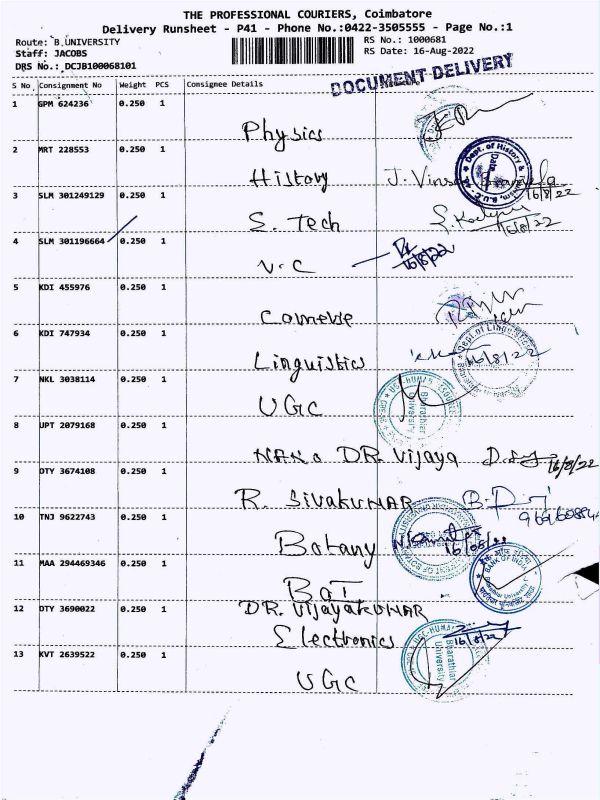 THE PROFESSIONAL COURIERS, Coimbatore
Delivery Runsheet - P41 - Phone No.:0422-3505555 - Page No.:1
Route: B.UNIVERSITY
RS No.: 1000681
Staff: JACOBS
RS Date: 16-Aug-2022
DRS No.: DCJB100068101
DOCUMENT DELIVERY
S No Consignment No Weight PCS Consignee Details
1 GPM 624236 0.250 1
Physics
2 MRT 228553 0.250 1
History J. Vinso
16/8/22
3 SLM 301249129 0.250 1
S. Tech 16/8/22
4 SLM 301196664 0.250 1
V.C 16/8/22
5 KDI 455976 0.250 1
6 KDI 747934 0.250 1
Dept. of Linguistics
Linguistics 16/8/22
7 NKL 3038114 0.250 1
UGC
Bharathiar University
8 UPT 2079168 0.250 1
NANO DR. Vijaya 16/8/22
9 DTY 3674108 0.250 1
R. SIVAKUMAR
10 TNJ 9622743 0.250 1
Botany 16/08/22
11 MAA 294469346 0.250 1
BANK OF INDIA
12 DTY 3690022 0.250 1
DR. VIJAYAKUMAR
Electronics 16/8/22
13 KVT 2639522 0.250 1
UGC
Bharathiar University